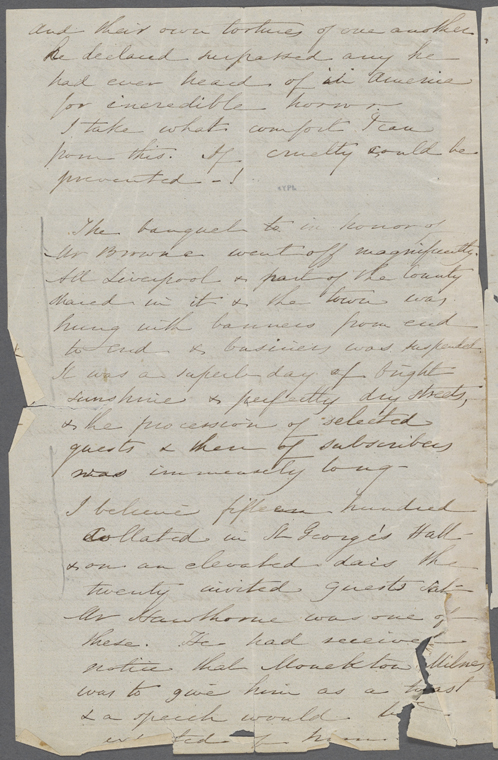 and their own tortures of one another
he declared surpassed any he
had ever heard of in America
for incredible horror.
I take what comfort I can
from this. If cruelty could be
prevented - !
The banquet to in honor of
Mr Browne went off magnificently.
All Liverpool & part of the County
shared in it & the town was
hung with banners from end
to end & business was suspended.
It was a superb day of bright
sunshine & perfectly dry streets,
& the procession of selected
guests & then of subscribers
was immensely long -
I believe fifteen hundred
collated in St George's Hall
& on an elevated dais the
twenty invited guests sat -
Mr Hawthorne was one of
these. He had received
notice that Monckton Milnes
was to give him as a toast
& a speech would be
of him